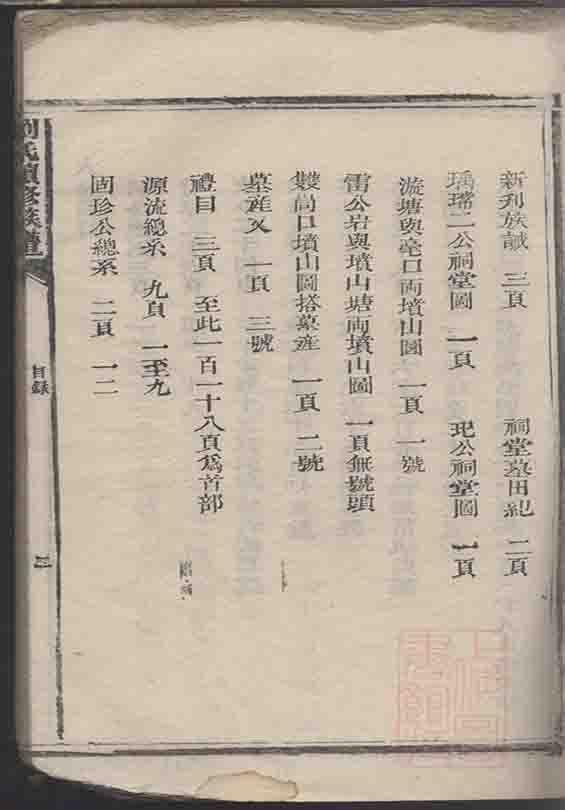 新刋族誡 三頁 祠堂墓田紀 二頁
瑀瑺二公祠堂圖 一頁 玘公祠堂圖 一頁
漩塘與亳口両墳山圖 一頁 一號
雷公岩與墳山塘両墳山圖 一頁無號頭
雙崗口墳山圖搭墓産 一頁 二號
墓産又 一頁 三號
禮目 三頁 至此一百一十八頁爲首部
源流總系 九頁 一至九
固珍公總系 二頁 一二
劉氏續修族譜
目錄
三